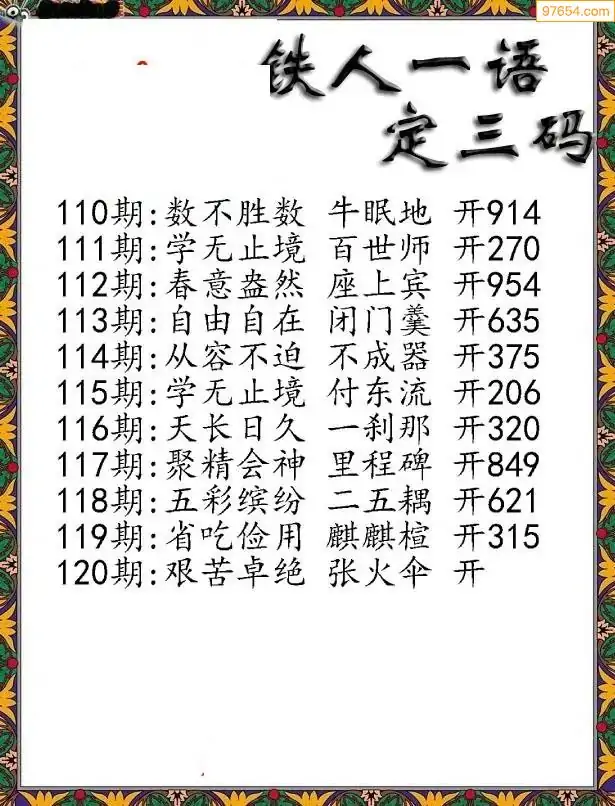 97654.com
铁人一语
定三码
110期:数不胜数 牛眠地 开914
111期:学无止境 百世师 开270
112期:春意盎然 座上宾 开954
113期:自由自在 闭门羹 开635
114期:从容不迫 不成器 开375
115期:学无止境 付东流 开206
116期:天长日久 一刹那 开320
117期:聚精会神 里程碑 开849
118期:五彩缤纷 二五耦 开621
119期:省吃俭用 麒麒楦 开315
120期:艰苦卓绝 张火伞 开